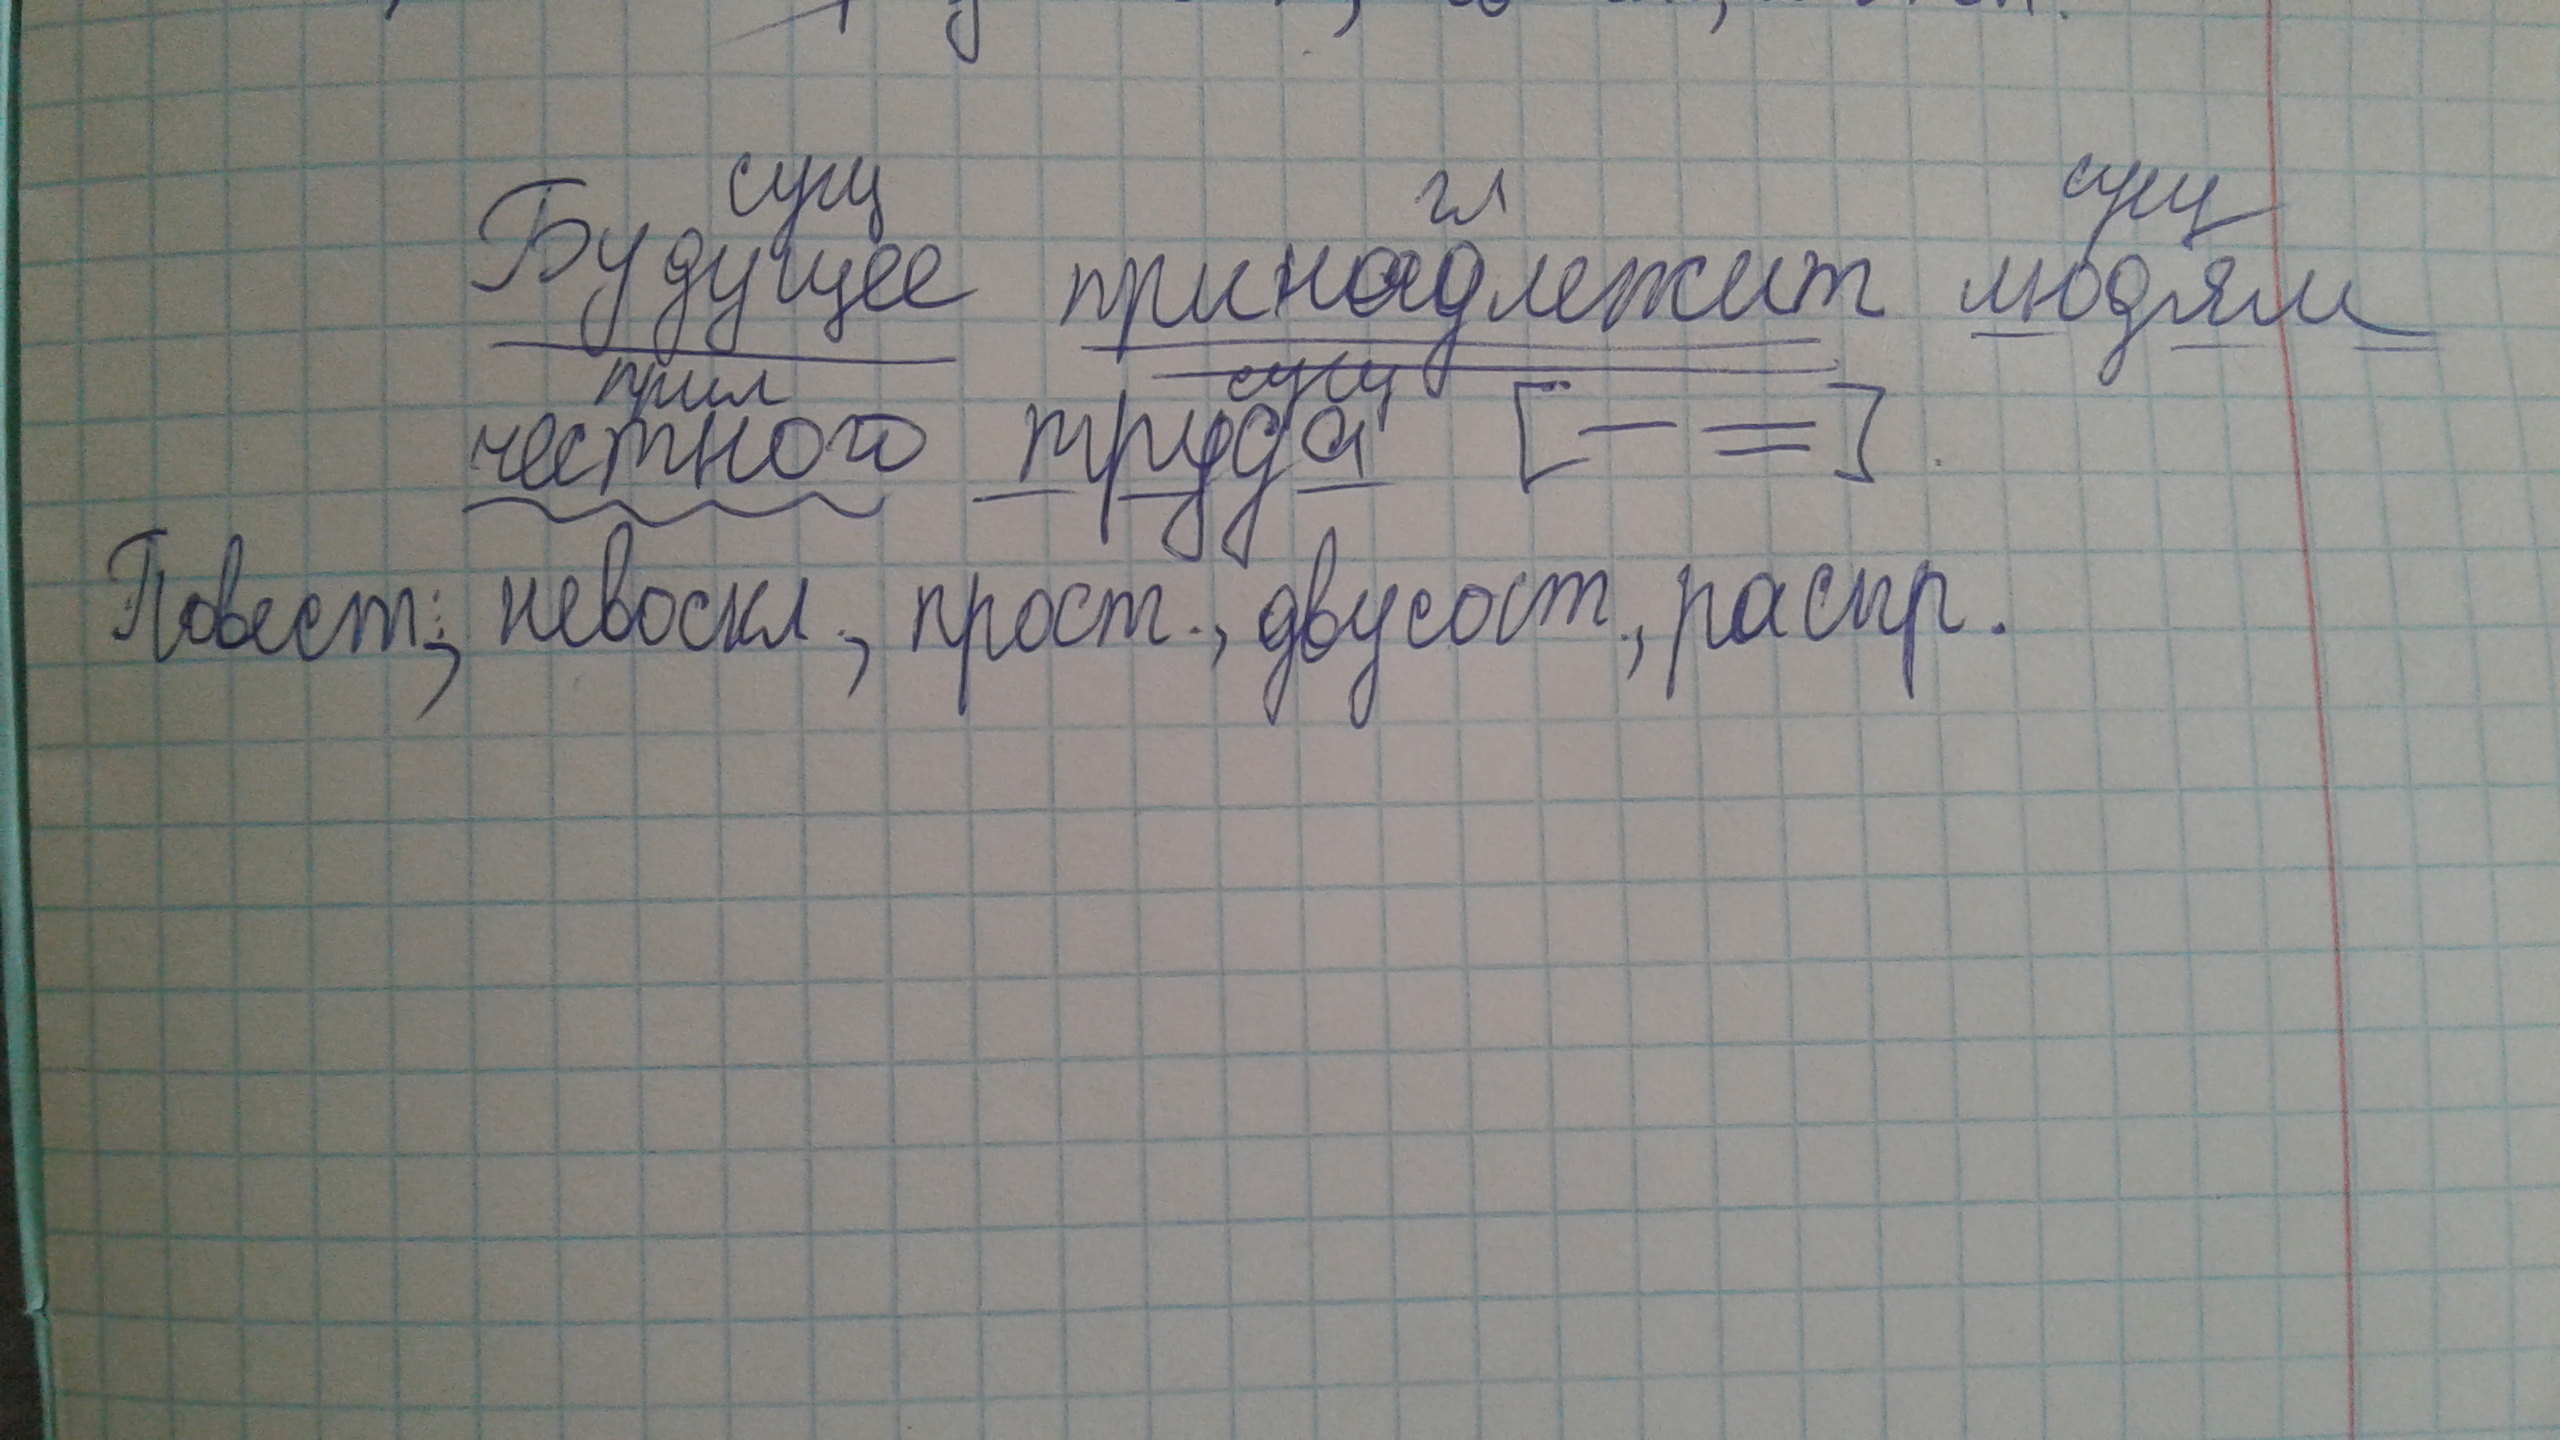 сущ гл сущ
Будущее принадлежит людям
прил сущ
честного труда [— =].
Повест., невоскл., прост., двусост., распр.